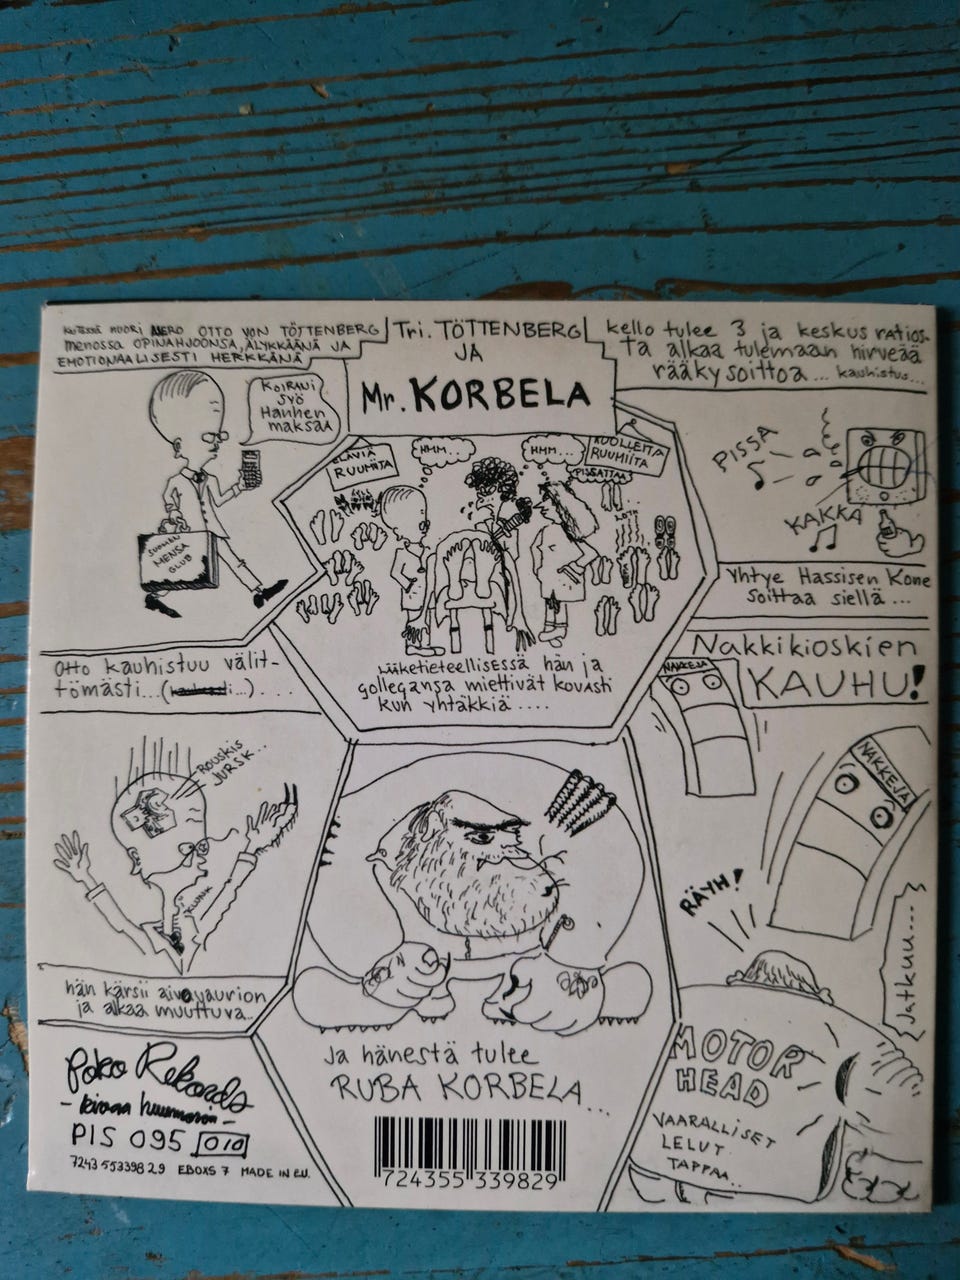 NUORI NERO OTTO VON TÖTTENBERG
menossa OPINAHJOONSA, ÄLYKKÄÄNÄ JA
EMOTIONAALISESTI HERKKÄNÄ
KOIRANI
SYÖ
Hanhen
maksaa
SUOMEN
MENSA
CLUB
Tri. TÖTTENBERG
JA
Mr. KORBELA
ELÄVIÄ
RUUMIITA
HMM...
HMM...
KUOLLEITA
RUUMIITA
PISSATTAA
Lääketieteellisessä hän ja
gollegansa miettivät kovasti
kun yhtäkkiä....
kello tulee 3 ja keskus ratios-
Ta alkaa tulemaan hirveää
rääky soittoa... kauhistus...
PISSA
KAKKA
Yhtye Hassisen Kone
Soittaa siellä...
Otto kauhistuu välit-
tömästi...
ROUSKIS
JURSK...
KUINK
hän kärsii aivovaurion
ja alkaa muuttuva...
Ja hänestä tulee
RUBA KORBELA...
Nakkikioskien
KAUHU!
NAKKEJA
NAKKEJA
RÄYH!
Jatkuu....
MOTOR
HEAD
VAARALLISET
LELUT
TAPPAA..
Poko Rekords
PIS 095 010
7243 5533982 9 EBOXS 7 MADE IN E.U.
724355 339829